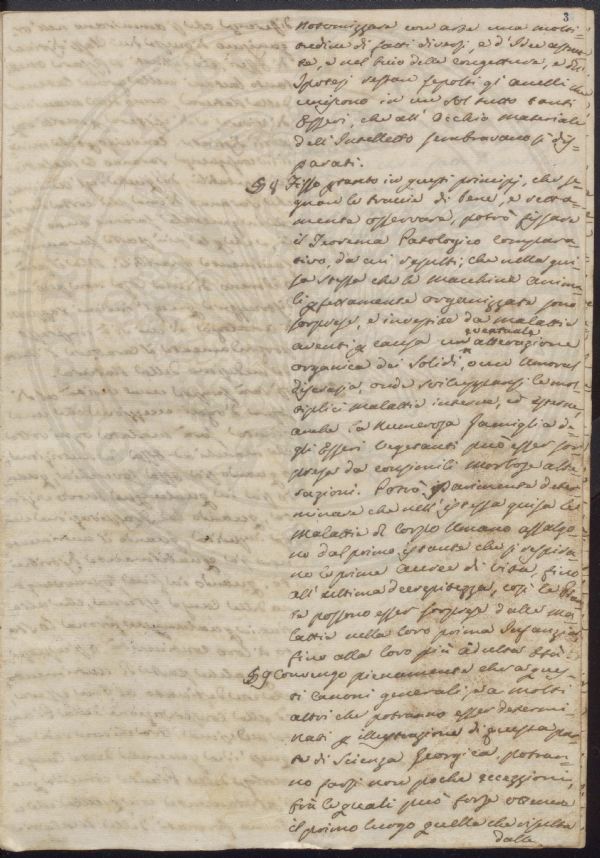 3
notomizzare con arte una molti-
tudine di fatti diversi, e d'Idee astrat-
te, e nel buio delle congetture, e dell'
Ipotesi restan sepolti gl'anelli che
uniscono in un sol tutto tanti
Esseri, che all'Occhio materiale
dell'Intelletto sembravano sì dis-
parati.
§ 8 Fisso pertanto in questi principj, che se-
guan le traccie di bene, e retta-
mente osservare, potrò fissare
il Teorema Patologico compara-
tivo, da cui risulti; che nella gui-
sa stessa che le macchine anima-
li perfettamente organizzate sono
sorprese, e investite da malattie
aventi per causa un' eventuale alterazione
organica dei solidi, o un umorale
discrasia, onde sviluppansi le mol-
tiplici malattie interne, ed esterne,
anche la numerosa famiglia de-
gli Esseri Vegetanti può esser sor-
presa da consimili morbose alte-
razioni. Potrò parimente deter-
minare che nell'istessa guisa le
malattie del Corpo Umano assalgo-
no dal primo istante che si respira-
no le prime aure di vita, fino
all'ultima decrepitezza, così le Pian-
te possono esser sorprese dalle ma-
lattie nella loro prima Infanzia
fino alla loro più adulta età.
§ 9 Convengo pienamente che a ques-
ti canoni generali, e a molti
altri che potranno esser determi-
nati per illustrazione di questa par-
te di Scienza Georgica, potran-
no farsi non poche eccezzioni,
fra le quali può forse ottenere
il primo luogo quella che risulta
dalla